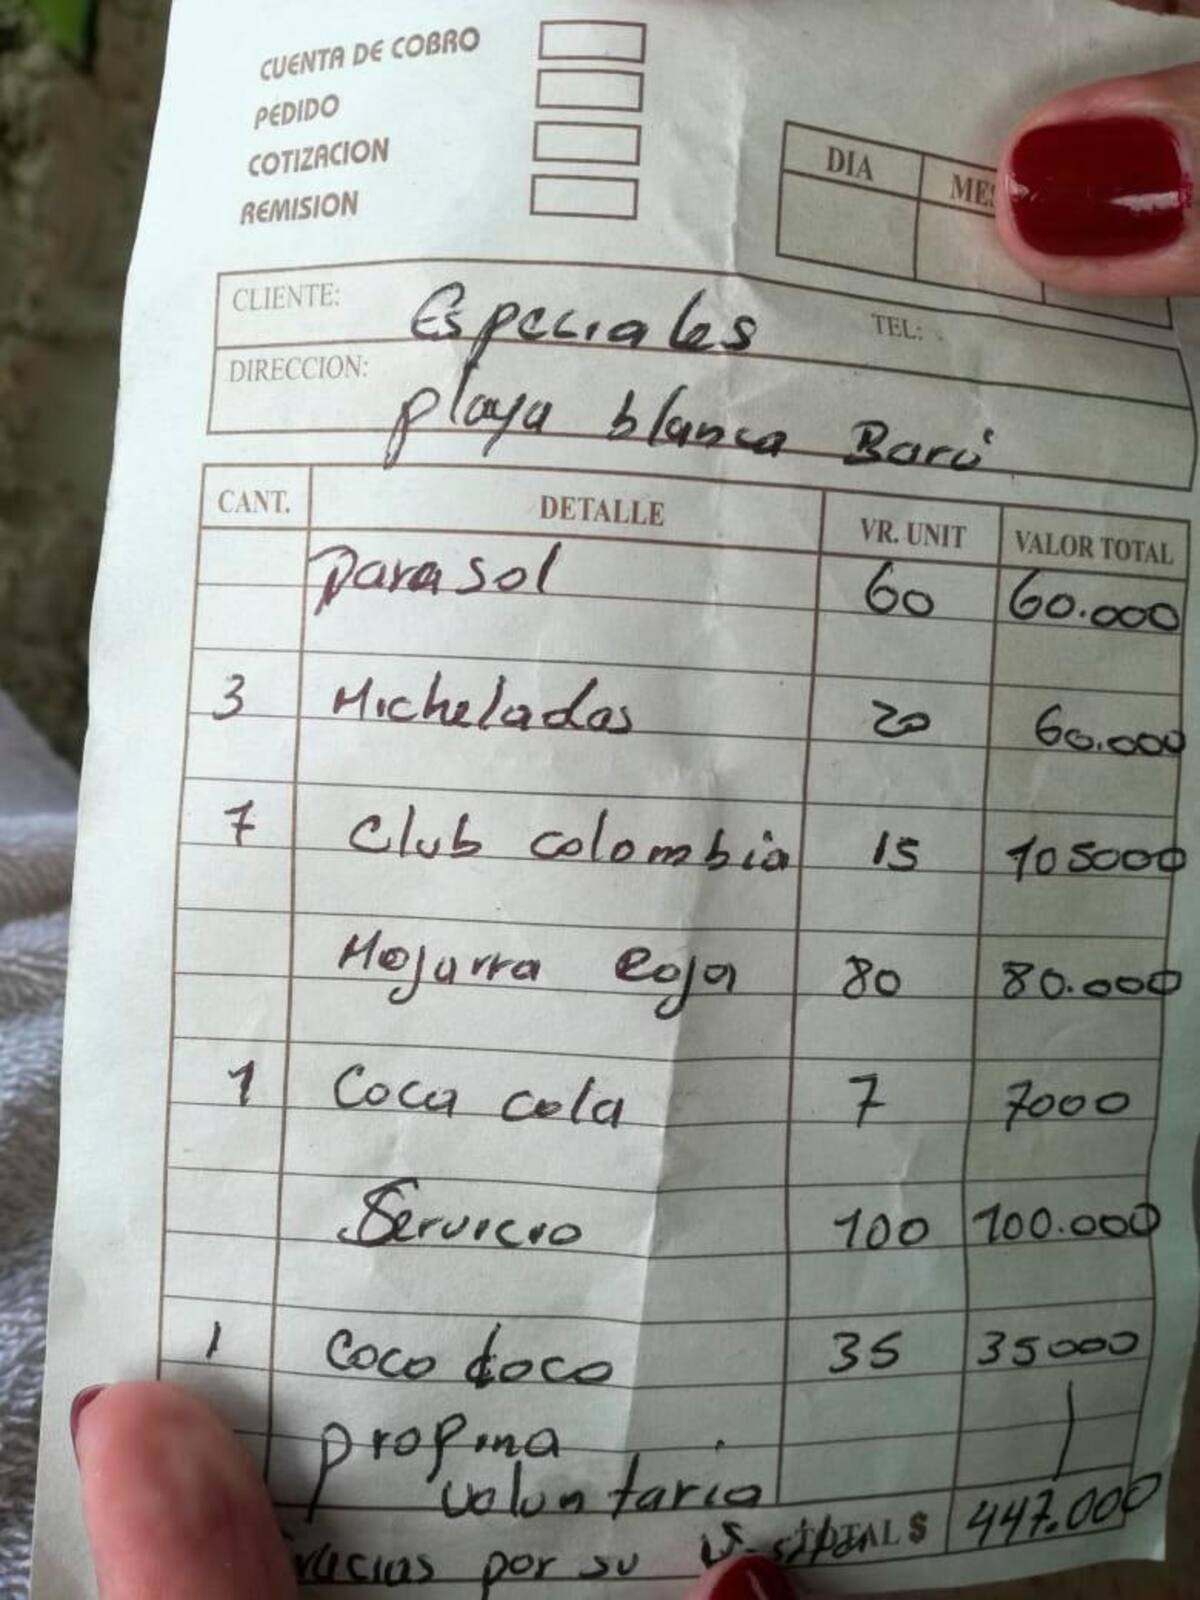 CUENTA DE COBRO
PEDIDO
COTIZACION
REMISION
DIA MES
CLIENTE: Especiales TEL:
DIRECCION: playa blanca Barú
CANT. DETALLE VR. UNIT VALOR TOTAL
Parasol 60 60.000
3 Micheladas 20 60.000
7 Club colombia 15 105000
Mojarra Roja 80 80.000
1 Coca cola 7 7000
Servicio 100 100.000
1 Coco Loco 35 35000
propina
voluntaria
TOTAL $ 447.000
gracias por su